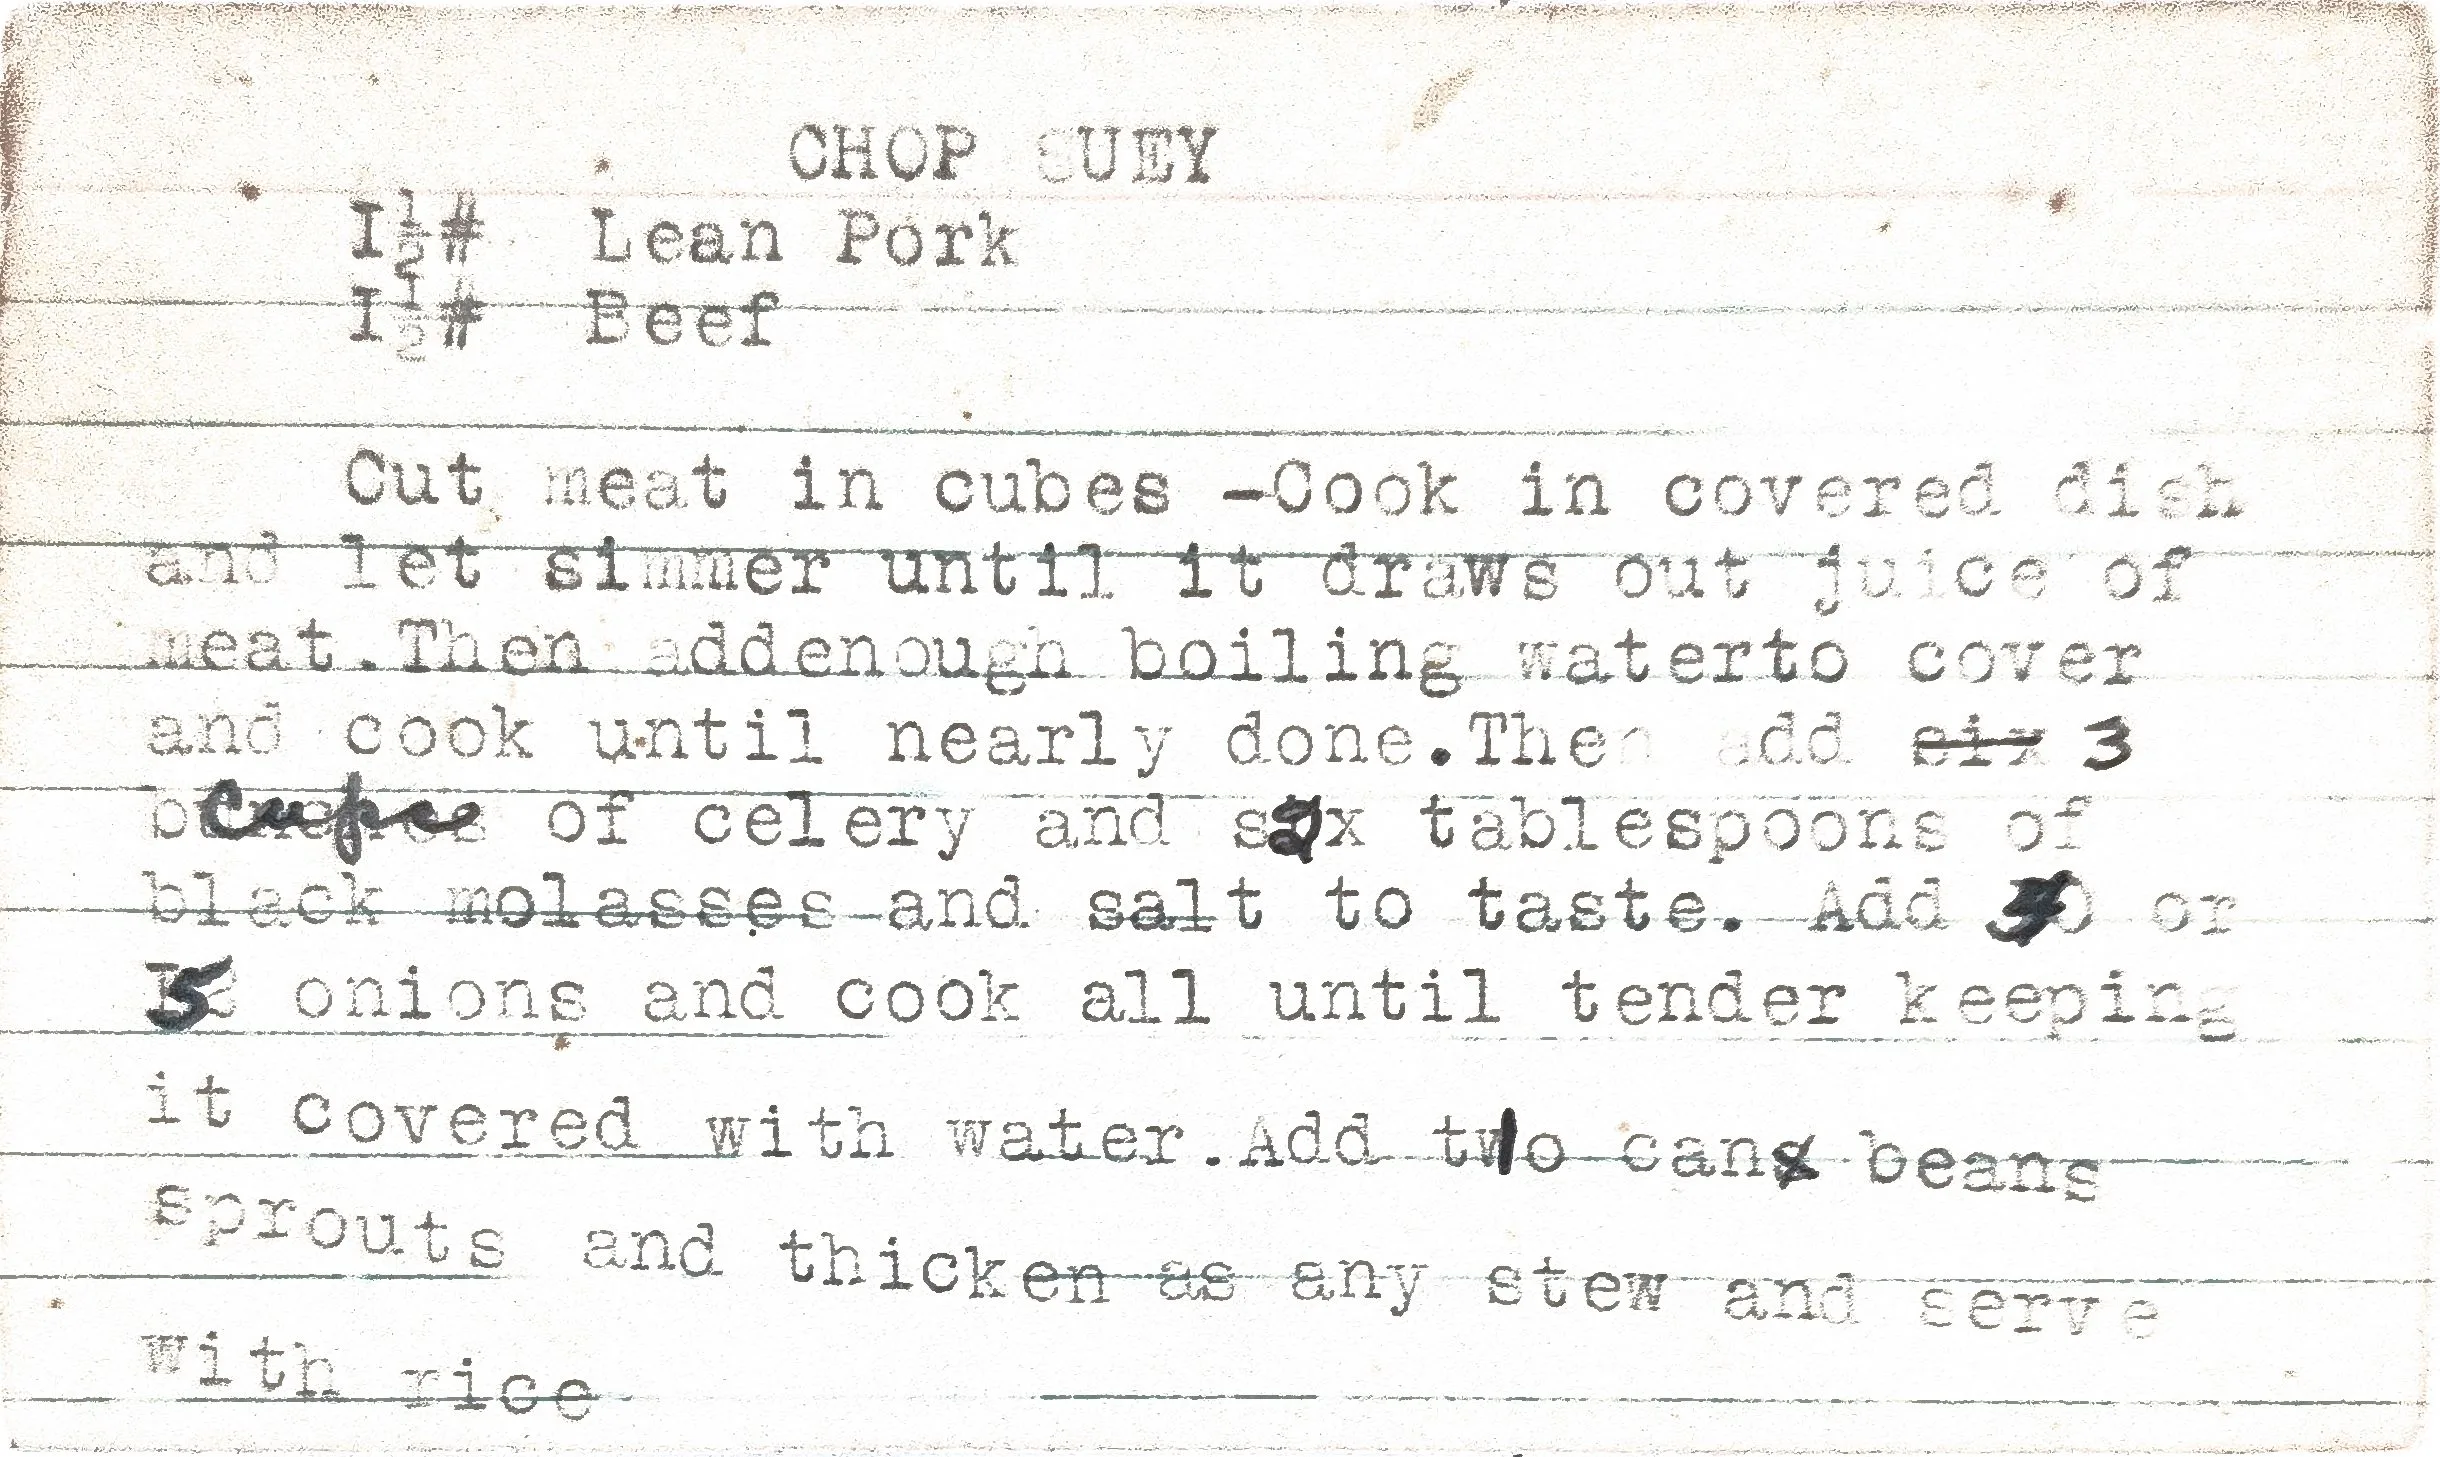 CHOP SUEY
I½# Lean Pork
I½# Beef
Cut meat in cubes -Cook in covered dish
and let simmer until it draws out juice of
meat.Then addenough boiling waterto cover
and cook until nearly done.Then add six 3
cups of celery and 2 tablespoons of
black molasses and salt to taste. Add 4 or
5 onions and cook all until tender keeping
it covered with water.Add 1 can beans
sprouts and thicken as any stew and serve
with rice